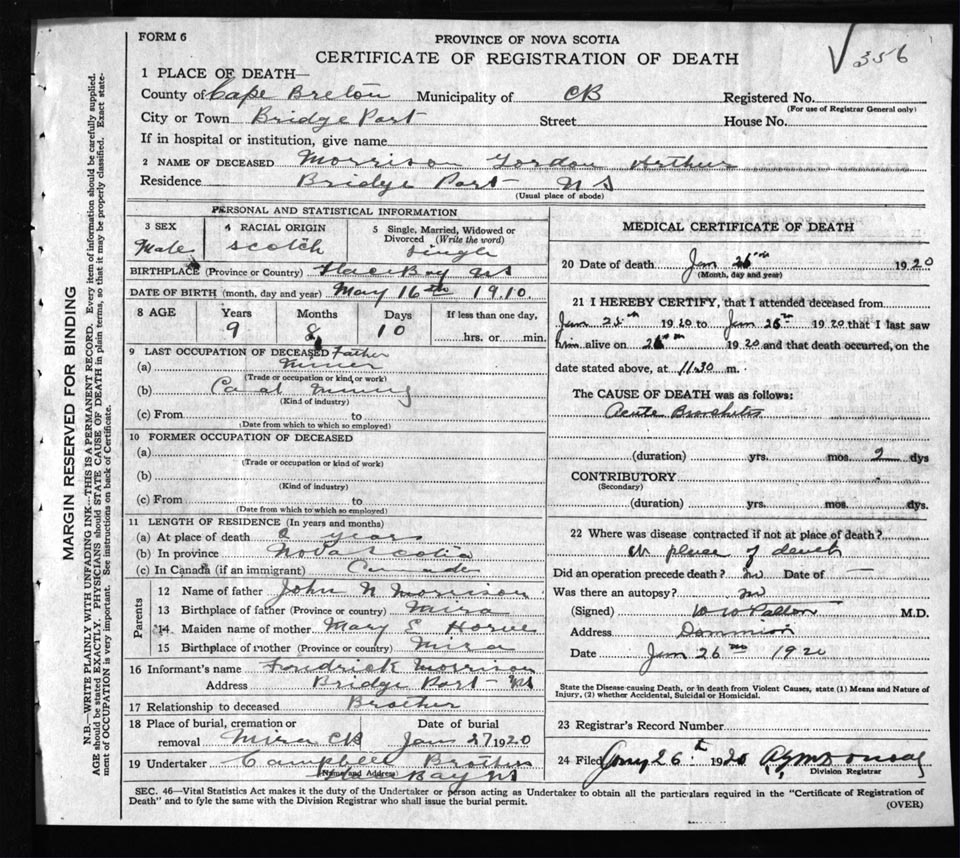 FORM 6
PROVINCE OF NOVA SCOTIA
√ 356
CERTIFICATE OF REGISTRATION OF DEATH
1 PLACE OF DEATH—
County of Cape Breton Municipality of CB Registered No.
(For use of Registrar General only)
City or Town Bridge Port Street House No.
If in hospital or institution, give name
2 NAME OF DECEASED Morrison Gordon Arthur
Residence Bridge Port NS
(Usual place of abode)
PERSONAL AND STATISTICAL INFORMATION
3 SEX 4 RACIAL ORIGIN 5 Single, Married, Widowed or
Divorced (Write the word)
Male Scotch Single
BIRTHPLACE (Province or Country) Glace Bay NS
DATE OF BIRTH (month, day and year) May 16th 1910.
8 AGE Years Months Days If less than one day,
9 8 10 hrs. or min.
9 LAST OCCUPATION OF DECEASED Father
(a) Miner
(Trade or occupation or kind, or work)
(b) Coal Mining
(Kind of industry)
(c) From to
(Date from which to which so employed)
10 FORMER OCCUPATION OF DECEASED
(a)
(Trade or occupation or kind of work)
(b)
(Kind of industry)
(c) From to
(Date from which to which so employed)
11 LENGTH OF RESIDENCE (In years and months)
(a) At place of death years
(b) In province Nova Scotia
(c) In Canada (if an immigrant) Canada
Parents
12 Name of father John N Morrison
13 Birthplace of father (Province or country) Mira
14 Maiden name of mother Mary E
15 Birthplace of mother (Province or country) Mira
16 Informant's name Morrison
Address Bridge Port NS
17 Relationship to deceased Brother
18 Place of burial, cremation or Date of burial
removal Mira CB Jan 27 1920
19 Undertaker Campbell Brothers
(Name and Address) Bay NS
MEDICAL CERTIFICATE OF DEATH
20 Date of death Jan 26th 1920
(Month, day and year)
21 I HEREBY CERTIFY, that I attended deceased from
Jan 25th 1920 to Jan 26th 1920 that I last saw
him alive on 26th 1920 and that death occurred, on the
date stated above, at 11.30 m.
The CAUSE OF DEATH was as follows:
Acute Bronchitis
(duration) yrs. mos. 2 dys
CONTRIBUTORY
(Secondary)
(duration) yrs. mos. dys
22 Where was disease contracted if not at place of death?
At place of death
Did an operation precede death? no Date of —
Was there an autopsy? no
(Signed) M.D.
Address Dominion
Date Jan 26th 1920
State the Disease causing Death, or in death from Violent Causes, state (1) Means and Nature of
Injury, (2) whether Accidental, Suicidal or Homicidal.
23 Registrar's Record Number
24 Filed Jany 26th 1920
Division Registrar
SEC. 46—Vital Statistics Act makes it the duty of the Undertaker or person acting as Undertaker to obtain all the particulars required in the "Certificate of Registration of
Death" and to fyle the same with the Division Registrar who shall issue the burial permit.
(OVER)
MARGIN RESERVED FOR BINDING
N.B.—WRITE PLAINLY WITH UNFADING INK—THIS IS A PERMANENT RECORD. Every item of information should be carefully supplied.
AGE should be stated EXACTLY. PHYSICIANS should STATE CAUSE OF DEATH in plain terms, so that it may be properly classified. Exact state-
ment of OCCUPATION is very important. See instructions on back of Certificate.